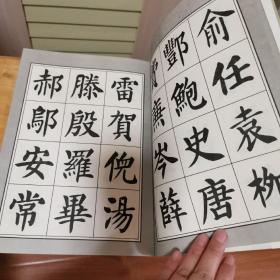 俞任袁柳
酆鮑史唐
費廉岑薛
雷賀倪湯
滕殷羅畢
郝鄔安常